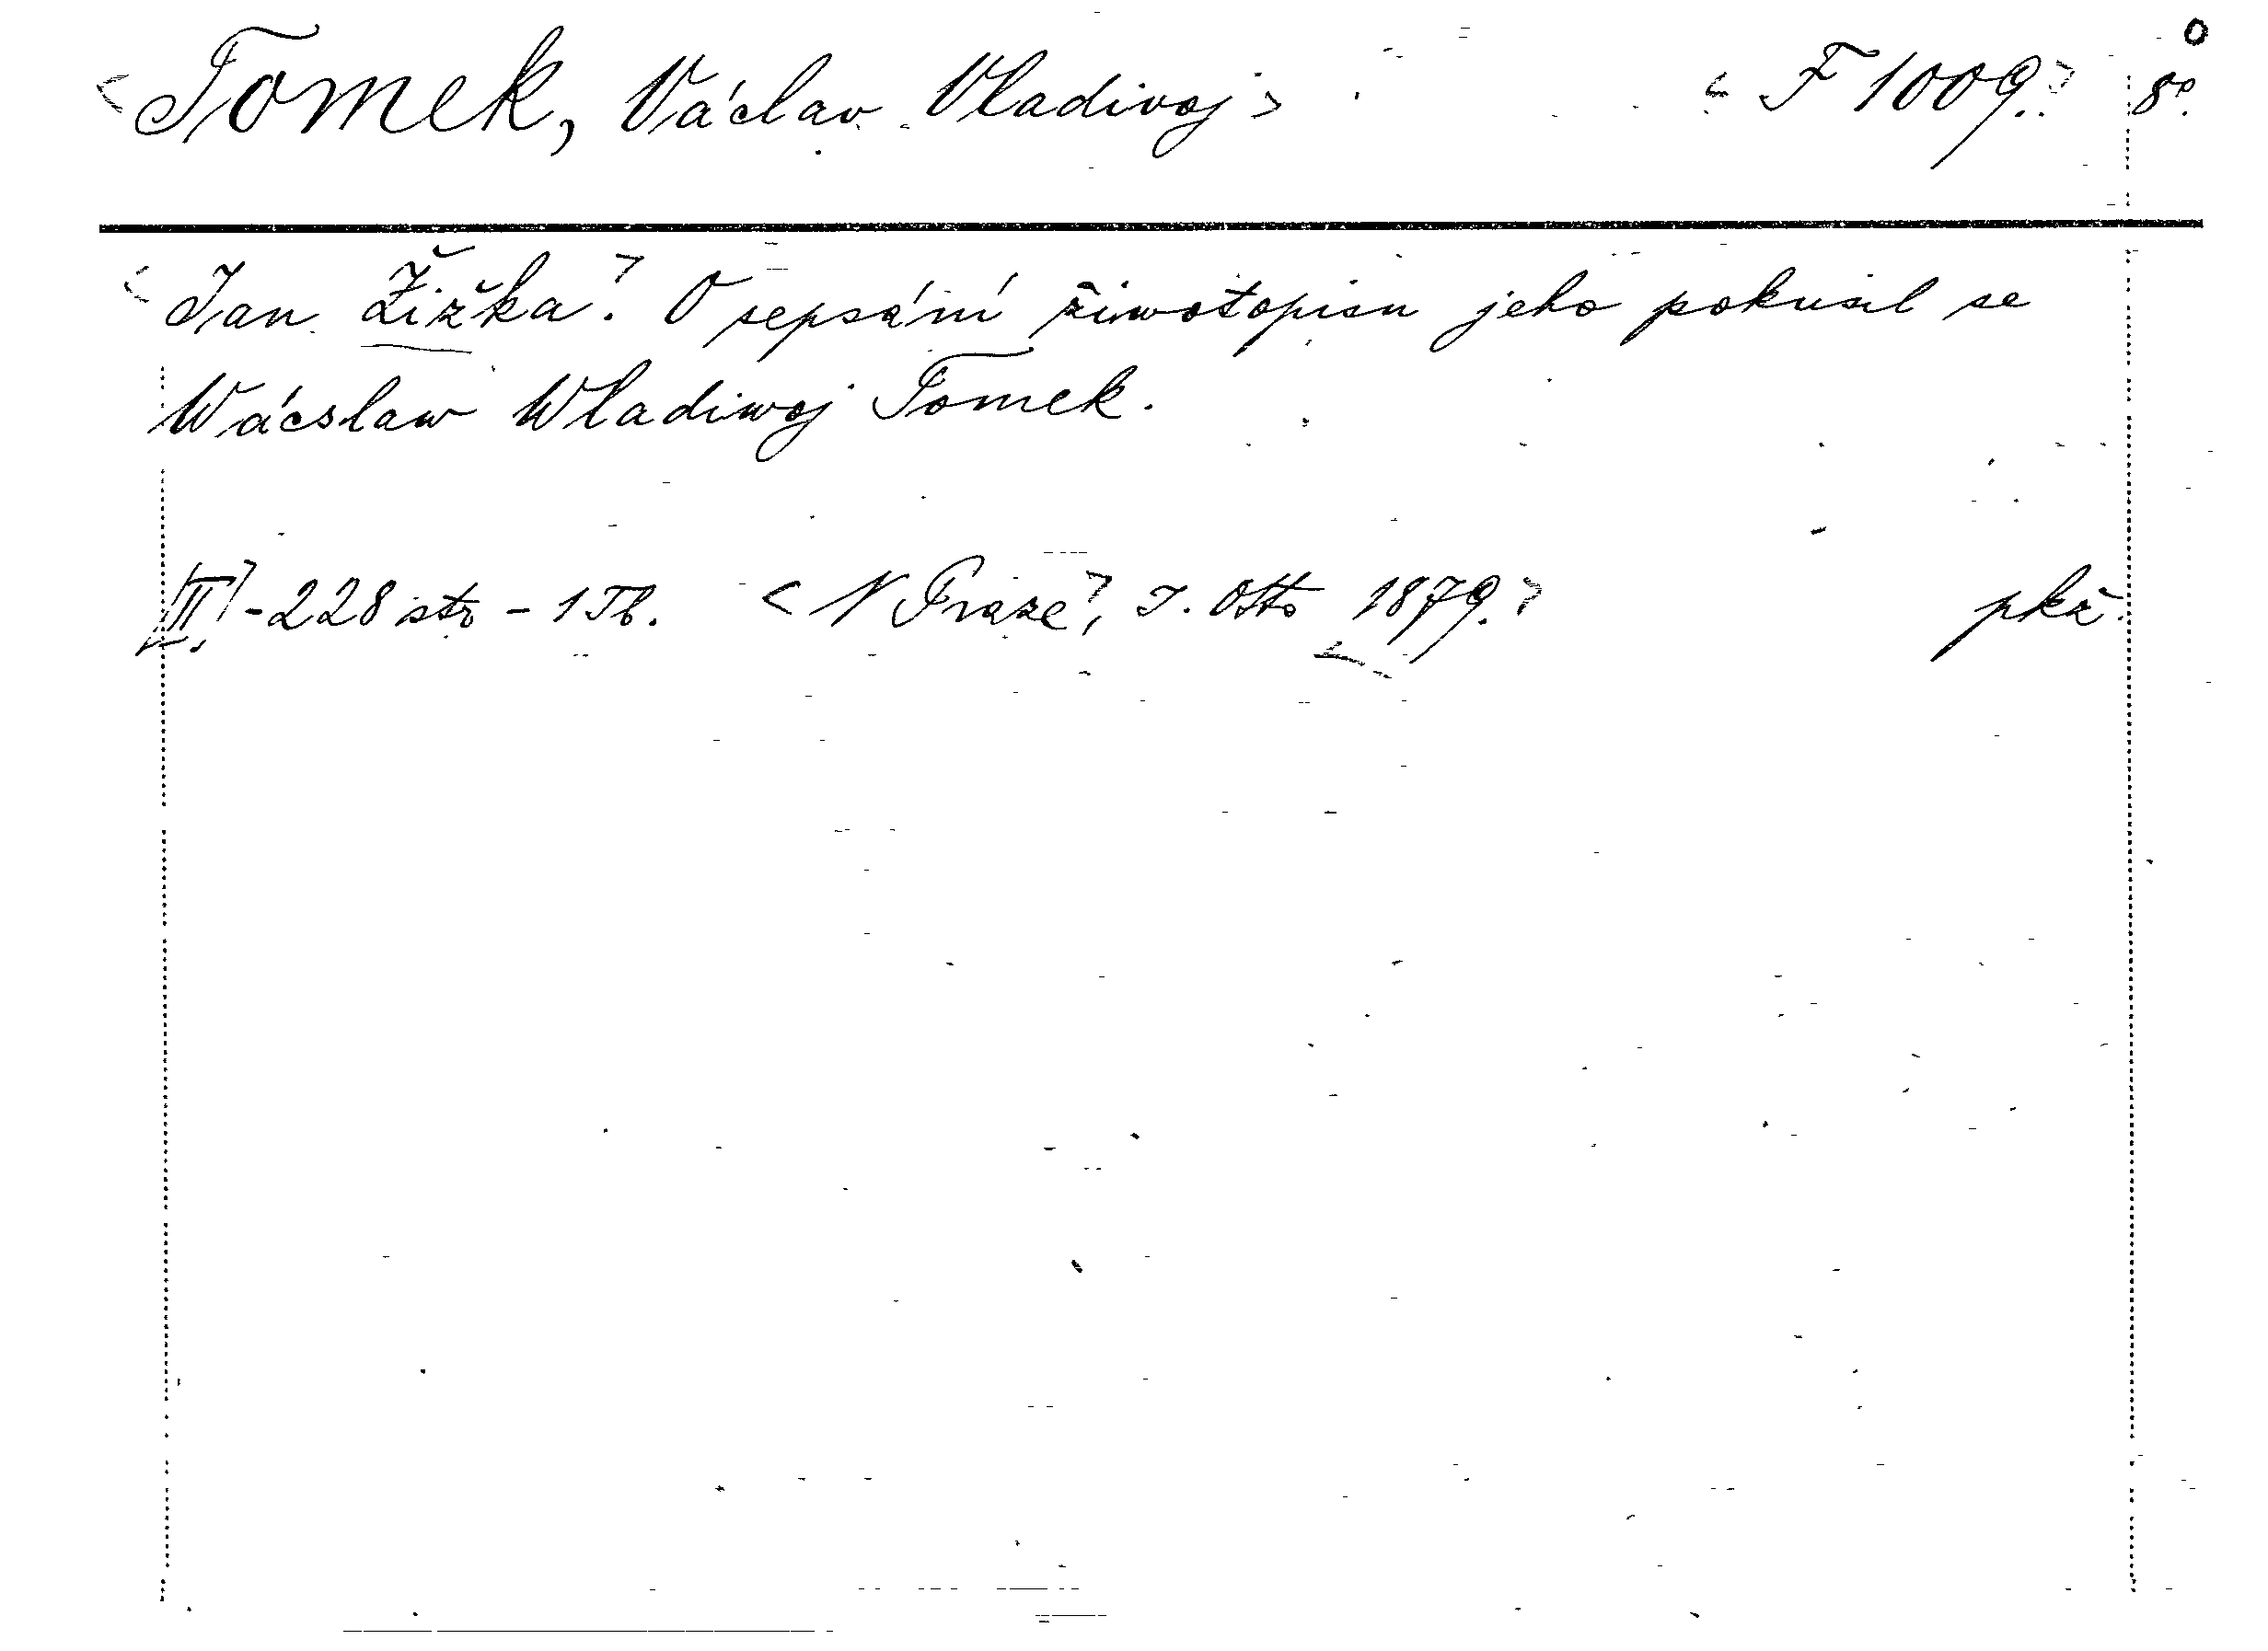 <Tomek, Václav Vladivoj> <F 1009.> 8°.
<Jan Žižka.> O sepsání životopisu jeho pokusil se
Wácslaw Wladiwoj Tomek.
[II] - 228 str - 1 Tb. <V Praze>, J. Otto 1879.> pkž.